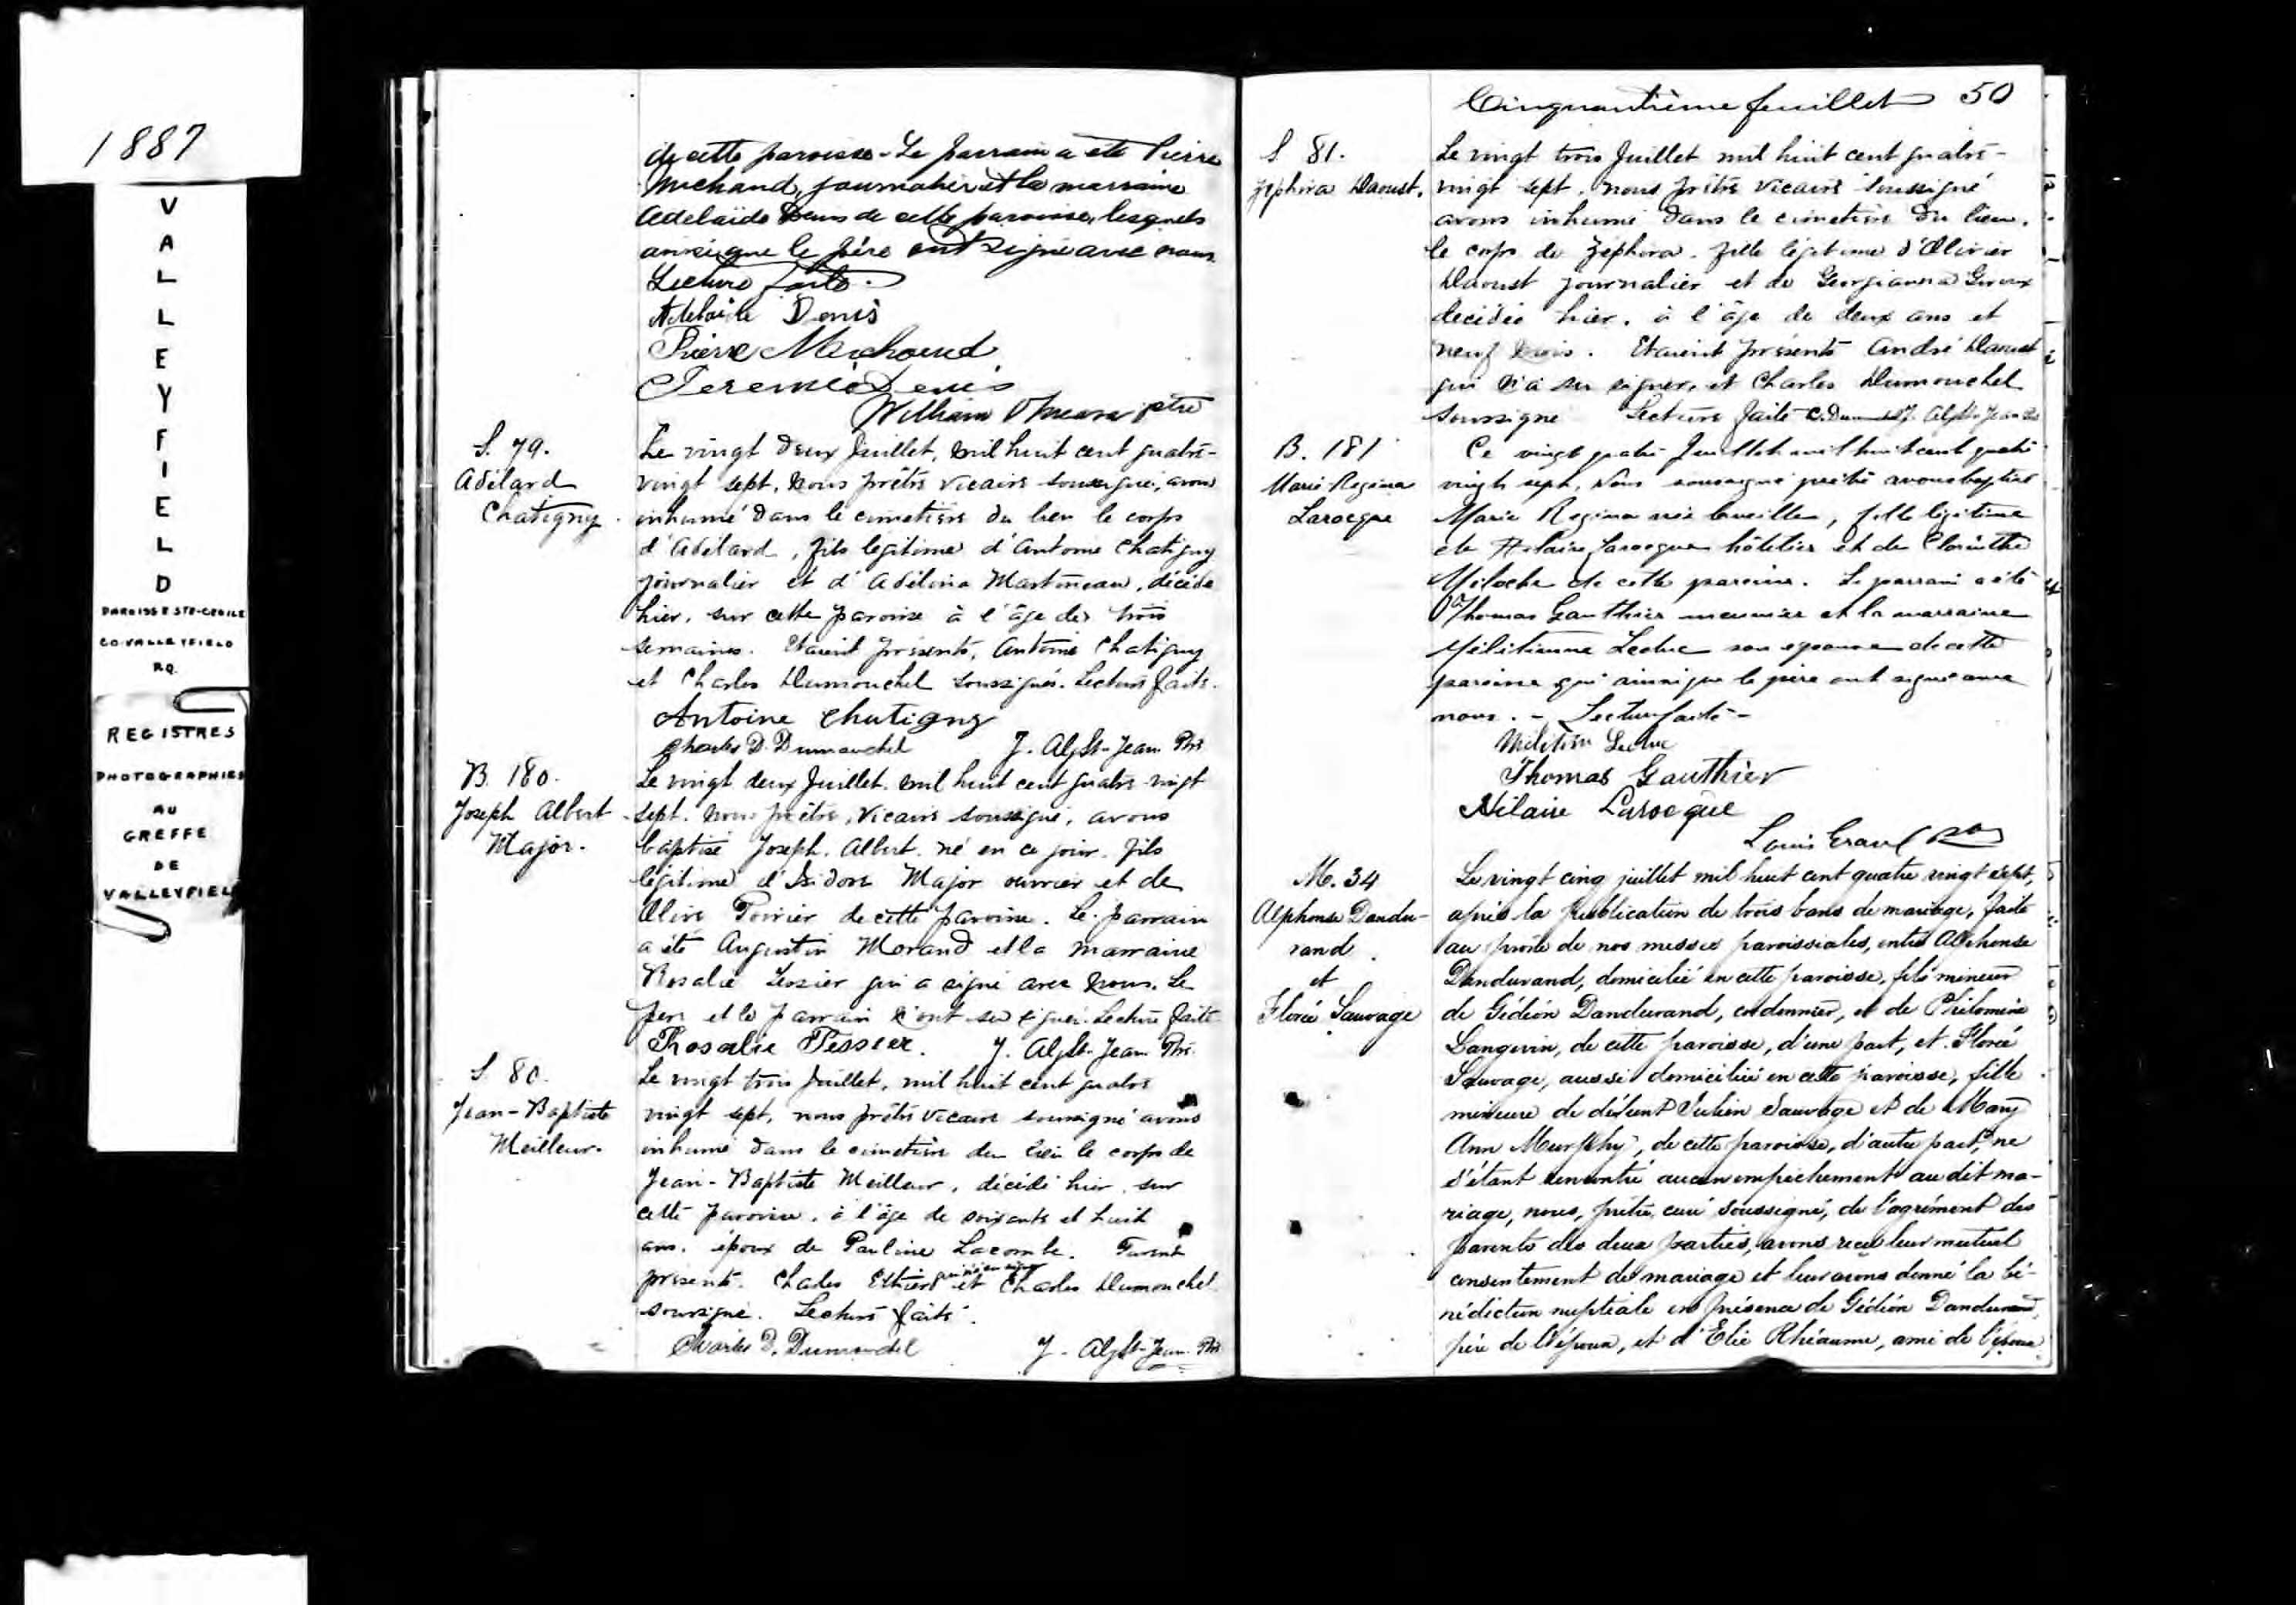 1887
VALLEYFIELD
PAROISSE STE-CECILE
CO. VALLEYFIELD
P.Q.
REGISTRES
PHOTOGRAPHIES
AU
GREFFE
DE
VALLEYFIELD
de cette paroisse - Le parrain a été Pierre
Michaud, journalier et la marraine
Adelaïde Denis de cette paroisse, lesquels
ainsi que le père ont signé avec nous.
Lecture faite.
Adelaïde Denis
Pierre Michaud
Jeremie Denis
William O'Meara ptre
S. 79.
Adélard
Chatigny.
Le vingt deux Juillet, mil huit cent quatre-
vingt sept, nous prêtre vicaire soussigné, avons
inhumé dans le cimetière du lieu le corps
d'Adélard, fils légitime d'Antoine Chatigny
journalier et d'Adélina Martineau, décédé
hier, sur cette paroisse à l'âge de trois
semaines. Etaient présents, Antoine Chatigny
et Charles Dumouchel soussignés. Lecture faite.
Antoine Chatigny
Charles D. Dumouchel J. Alph. St-Jean Ptre
B. 180.
Joseph Albert
Major.
Le vingt deux Juillet, mil huit cent quatre-vingt
sept, nous prêtre, vicaire soussigné, avons
baptisé Joseph, Albert, né en ce jour, fils
légitime d'Isidore Major ouvrier et de
Olive Poirier de cette paroisse. Le parrain
a été Augustin Morand et la marraine
Rosalie Tessier qui a signé avec nous. Le
père et le parrain n'ont su signer. Lecture faite
Rosalie Tessier. J. Alph. St-Jean Ptre.
S. 80.
Jean-Baptiste
Meilleur.
Le vingt trois Juillet, mil huit cent quatre
vingt sept, nous prêtre vicaire soussigné avons
inhumé dans le cimetière du lieu le corps de
Jean-Baptiste Meilleur, décédé hier, sur
cette paroisse, à l'âge de soixante et huit
ans, époux de Pauline Lacombe. Furent
présents. Charles Ethier qui n'a su signer et Charles Dumouchel
soussigné. Lecture faite.
Charles D. Dumouchel J. Alph. St-Jean Ptre
Cinquantième feuillet 50
S 81.
Zéphira Daoust.
Le vingt trois Juillet mil huit cent quatre-
vingt sept, nous prêtre vicaire soussigné
avons inhumé dans le cimetière du lieu,
le corps de Zéphira, fille légitime d'Olivier
Daoust journalier et de Georgianna Giroux
décédée hier, à l'âge de deux ans et
neuf mois. Etaient présents André Daoust
qui n'a su signer, et Charles Dumouchel
soussigné Lecture faite C. Dumouchel J. Alph. St-Jean Ptre
B. 181
Marie Regina
Larocque
Ce vingt quatre Juillet mil huit cent quatre
vingt sept, Nous soussigné prêtre avons baptisé
Marie Regina née la veille, fille légitime
de Hilaire Larocque hôtelier et de Clorinthe
Meloche de cette paroisse. Le parrain a été
Thomas Gauthier meunier et la marraine
Mélitienne Leduc son épouse de cette
paroisse qui ainsi que le père ont signé avec
nous. - Lecture faite -
Leduc
Thomas Gauthier
Hilaire Larocque
Louis
M. 34
Alphonse Dandu-
rand
et
Florée Sauvage
Le vingt cinq juillet mil huit cent quatre vingt sept,
après la publication de trois bans de mariage, faite
au prône de nos messes paroissiales, entre Alphonse
Dandurand, domicilié en cette paroisse, fils mineur
de Gédéon Dandurand, cordonnier, et de Philomène
Langevin, de cette paroisse, d'une part, et Florée
Sauvage, aussi domiciliée en cette paroisse, fille
mineure de défunt Julien Sauvage et de Mary
Ann Murphy, de cette paroisse, d'autre part, ne
s'étant rencontré aucun empêchement au dit ma-
riage, nous, prêtre, curé soussigné, de l'agrément des
parents des deux parties, avons reçu leur mutuel
consentement de mariage et leur avons donné la bé-
nédiction nuptiale en présence de Gédéon Dandurand,
père de l'époux, et d'Elie Rhéaume, ami de l'épouse